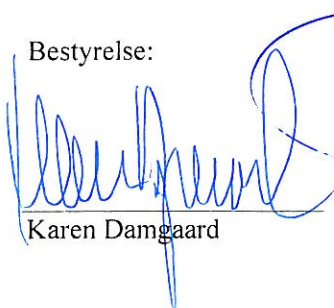 Bestyrelse:
Karen Damgaard